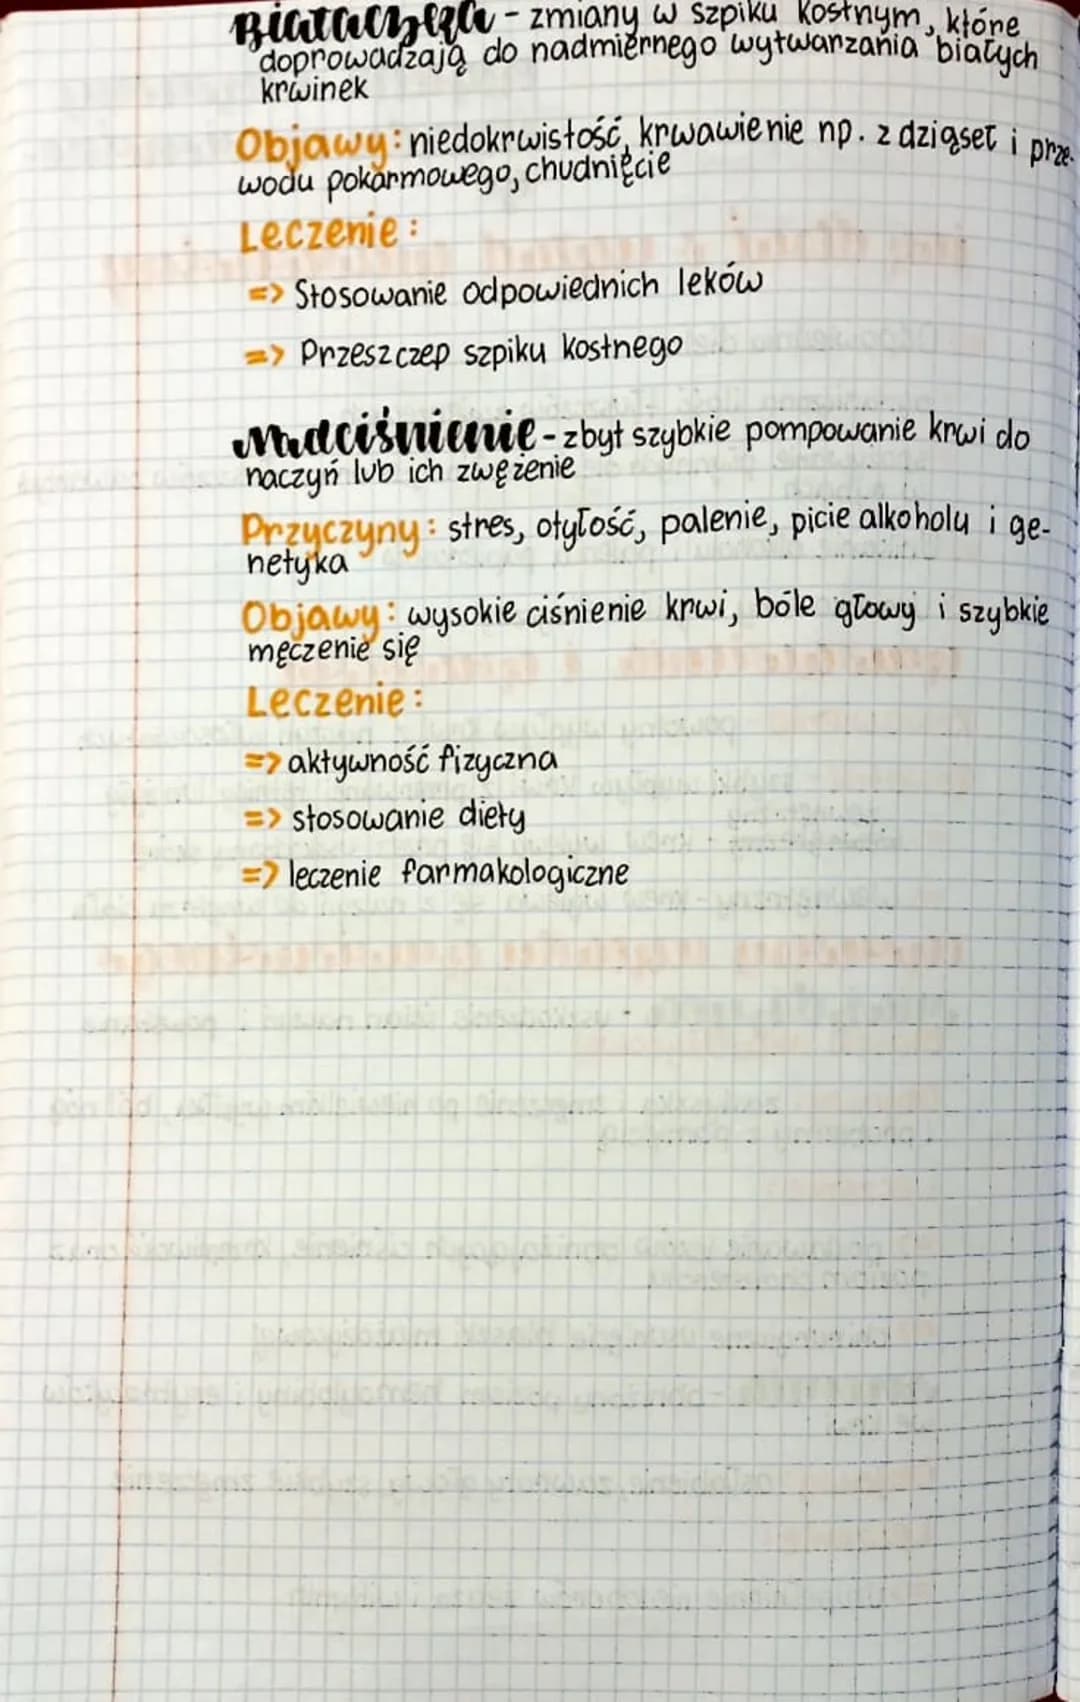 Białaczka - zmiany w szpiku kostnym, które
doprowadzają do nadmiernego wytwarzania białych
krwinek
Objawy: niedokrwistość, krwawienie np. z dziąseł i prze-
wodu pokarmowego, chudnięcie
Leczenie:
=> Stosowanie odpowiednich leków
=> Przeszczep szpiku kostnego
Nadciśnienie - zbyt szybkie pompowanie krwi do
naczyń lub ich zwężenie
Przyczyny: stres, otyłość, palenie, picie alkoholu i ge-
netyka
Objawy: wysokie ciśnienie krwi, bóle głowy i szybkie
męczenie się
Leczenie:
=> aktywność fizyczna
=> stosowanie diety
=> leczenie farmakologiczne